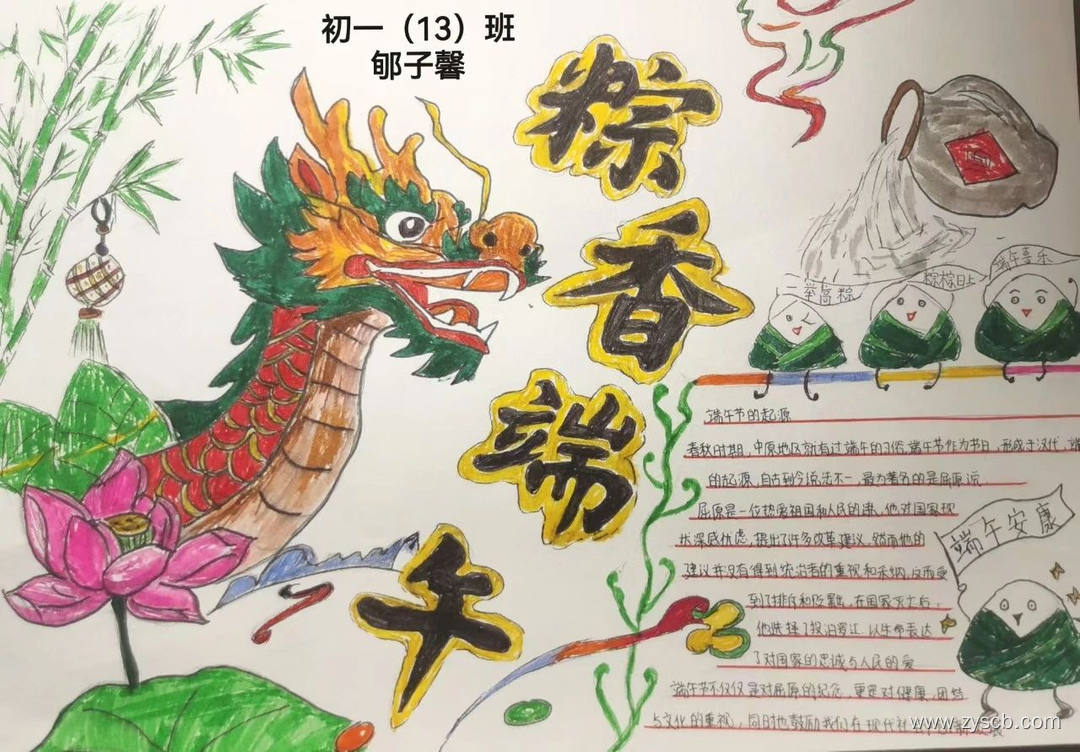 初一（13）班
郇子馨
粽香端午
一举高粽
粽粽日上
端午喜乐
端午节的起源
春秋时期，中原地区就有过端午的习俗，端午节作为节日，形成于汉代，端
的起源，自古到今说法不一，最为著名的是屈原说
屈原是一位热爱祖国和人民的 他对国家现
状深感忧虑，提出了许多改革建议，然而他的
建议并没有得到统治者的重视和采纳，反而受
到了排斥和贬黜，在国家灭亡后，
他选择了投汨罗江，以生命表达
了对国家的忠诚与人民的爱
端午节不仅仅是对屈原的纪念，更是对健康、团结
与文化的重视，同时也鼓励我们在现代社
端午安康
www.zyscb.com